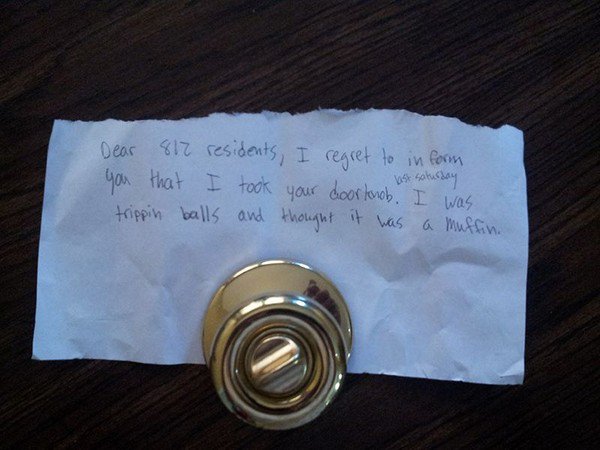 Dear 812 residents, I regret to inform
you that I took your doorknob. last saturday I was
trippin balls and thought it was a muffin.